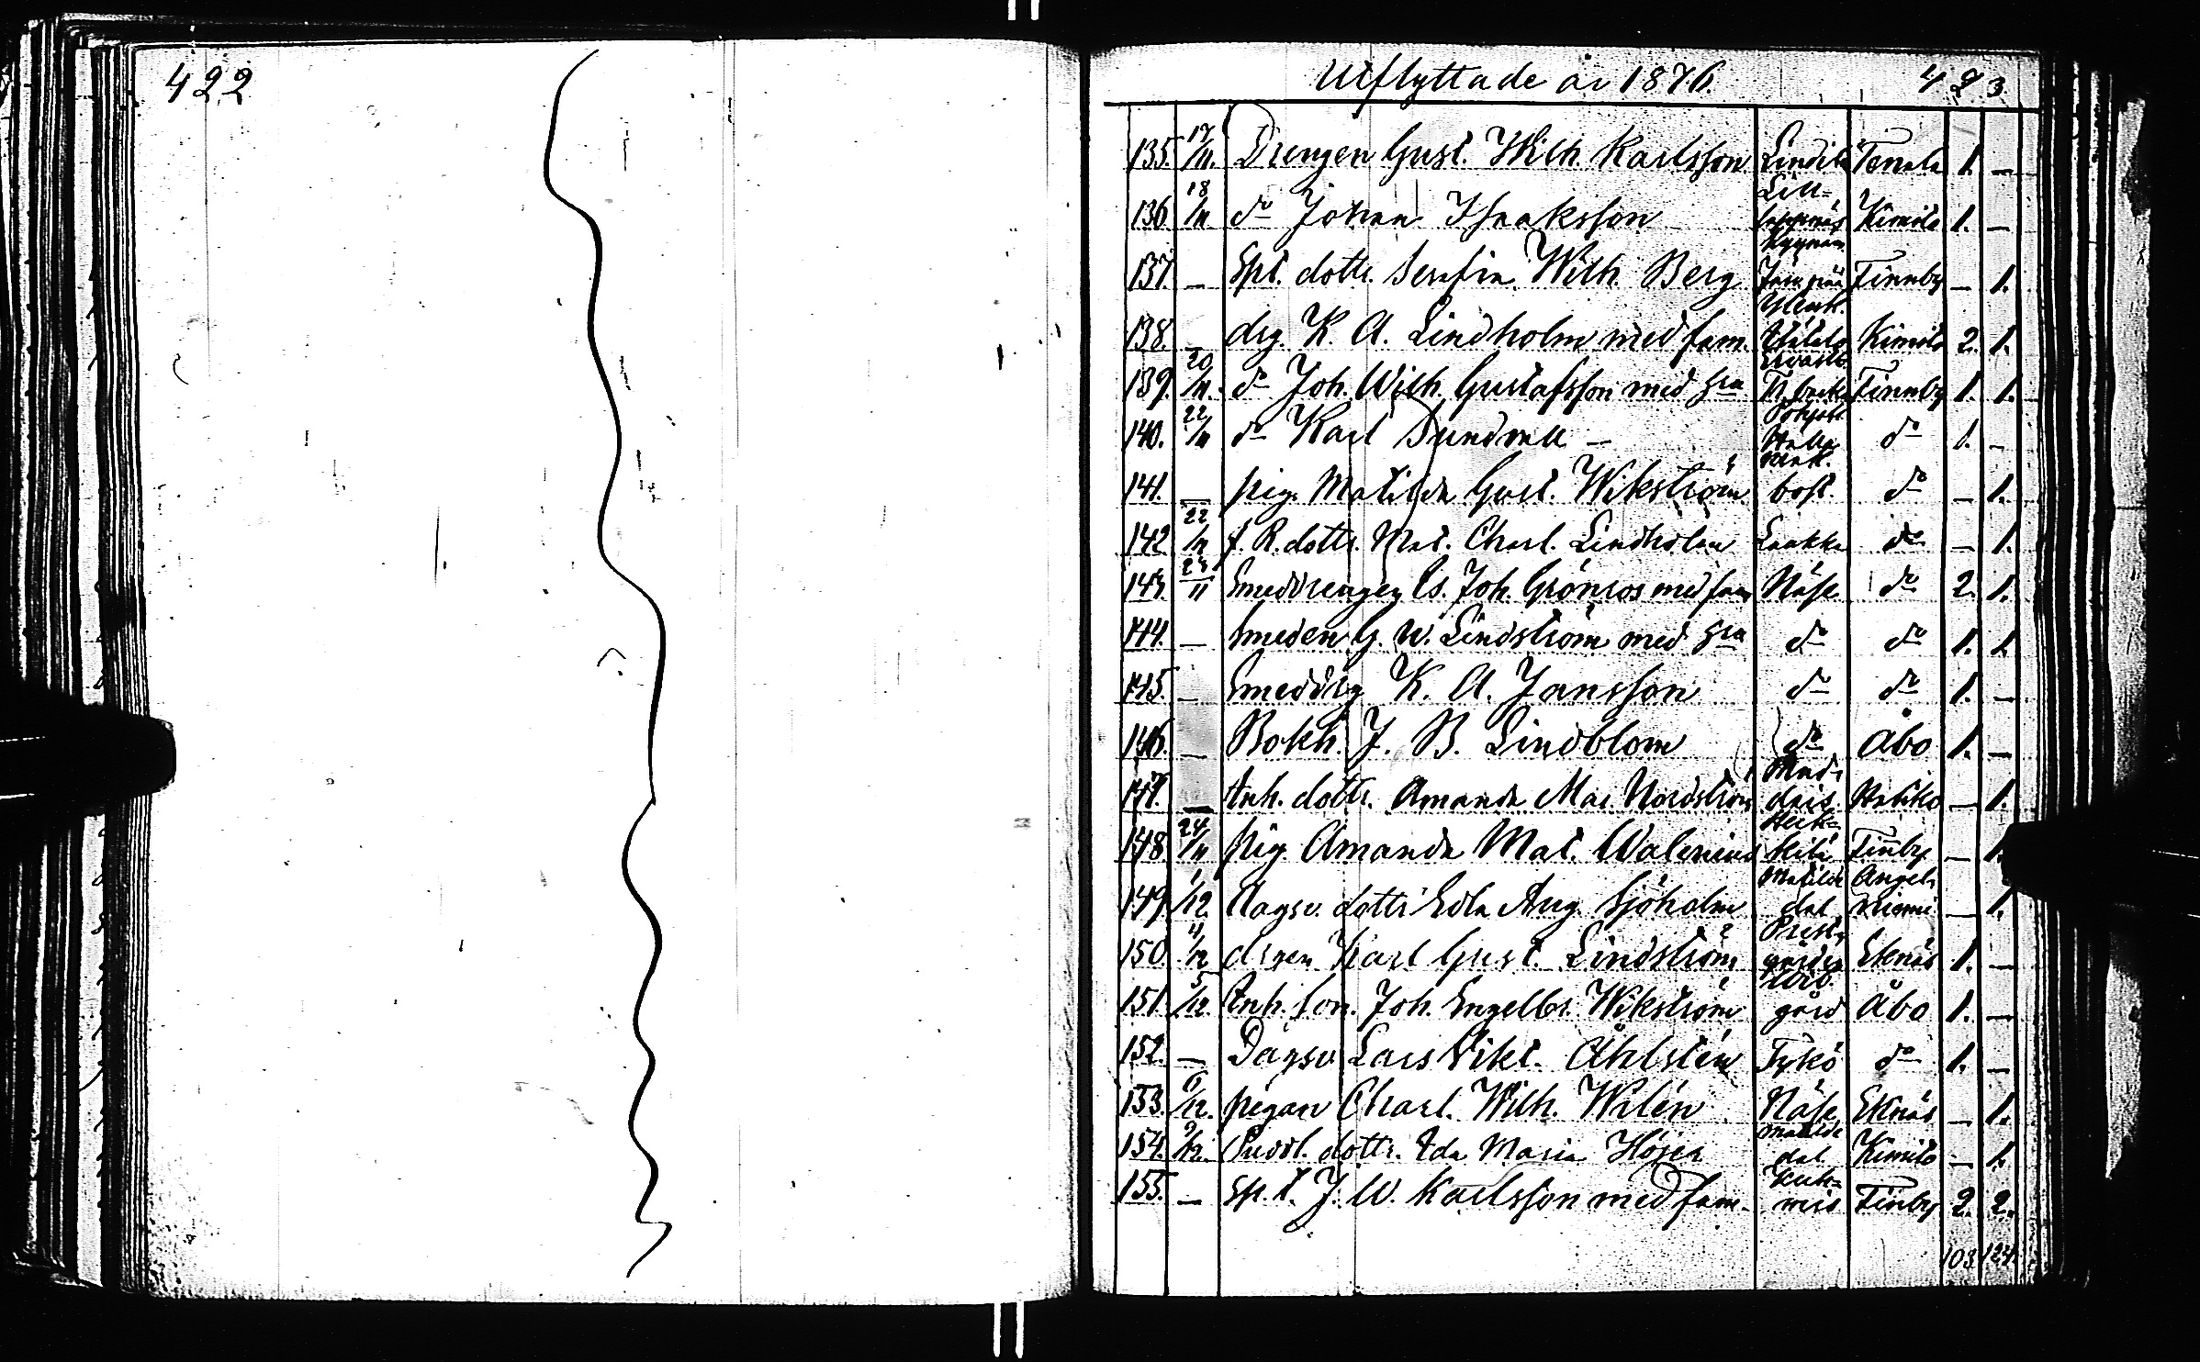 422
Utflyttade år 1876.
423
135. 17/11. Drengen Gust. Wilh. Karlsson Lindila Tenala 1. –
136. 18/11 do Johan Isaksson Lill- Kimito 1. –
137. – Spt. dottr. Serafia Wilh. Berg Finnby – 1.
138. – drg. K. A. Lindholm med fam. Kimito 2. 1.
139. 20/11. do Joh. Wilh. Gustafsson med hu Finnby 1. 1.
140. 22/11 do Karl Sundvall – do 1. –
141. – pig. Matilda Gust. Wikström bost. do – 1.
142 22/11 f. R. dottr. Mat. Charl. Lindholm Laakka do – 1.
143. 23/11 Smeddrengen Cs. Joh. Grönroos med fam Näse do 2. 1.
144. – Smeden G. W. Lindström med hu do do 1. 1.
145. – Smeddrg K. A. Jansson do do 1. –
146. – Bokh. J. B. Lindblom do Åbo 1. –
147. – Inh. dottr. Amanda Mar. Nordström Halikko – 1.
148 24/11 pig. Amanda Mat. Walenius Finby – 1.
149. 1/12 Dagsv. dottr Edla Aug. Sjöholm Matildedal Angelniemi – 1.
150. 4/12 drgen Karl Gust. Lindström Prestgården Ekenäs 1. –
151. 5/12. Inh. son. Joh. Engelbr. Wikström gård Åbo 1. –
152. – Dagsv Lars Vikt. Åhlstén Tykö do 1. –
153. 6/12. pigan Charl. Wilh. Wilén Näse Eknäs – 1.
154. 9/12. Puddl. dottr. Ida Maria Höjer Matildedal Kimito – 1.
155. – Sp. t. J. W. Karlsson med fam. Finby 2. 2.
103. 124.